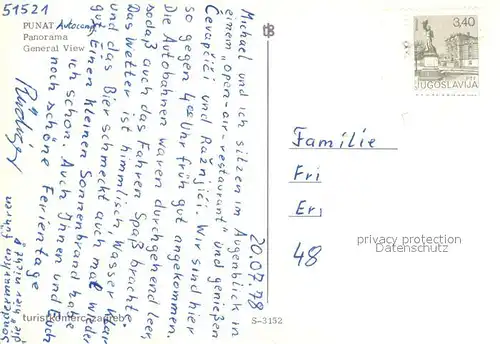 51521
PUNAT Autocamp
Panorama
General View
20.07.78
Michael und ich sitzen im Augenblick in
einem "open-air-restaurant" und genießen
Čevapčići und Ražnjići. Wir sind hier
so gegen 4 Uhr früh gut angekommen.
Die Autobahnen waren durchgehend leer,
sodaß auch das Fahren Spaß brachte.
Das Wetter ist himmlisch, Wasser klar
und das Bier schmeckt auch mal wieder
gut. Einen kleinen Sonnenbrand habe
ich schon. Auch Ihnen und Euch
noch schöne Ferientage
Rüdiger
die hier nicht
Sondermarken führen
turistkomerc, zagreb
S-3152
3,40
PTT
JUGOSLAVIJA
Familie
Fri
Er
48
privacy protection
Datenschutz